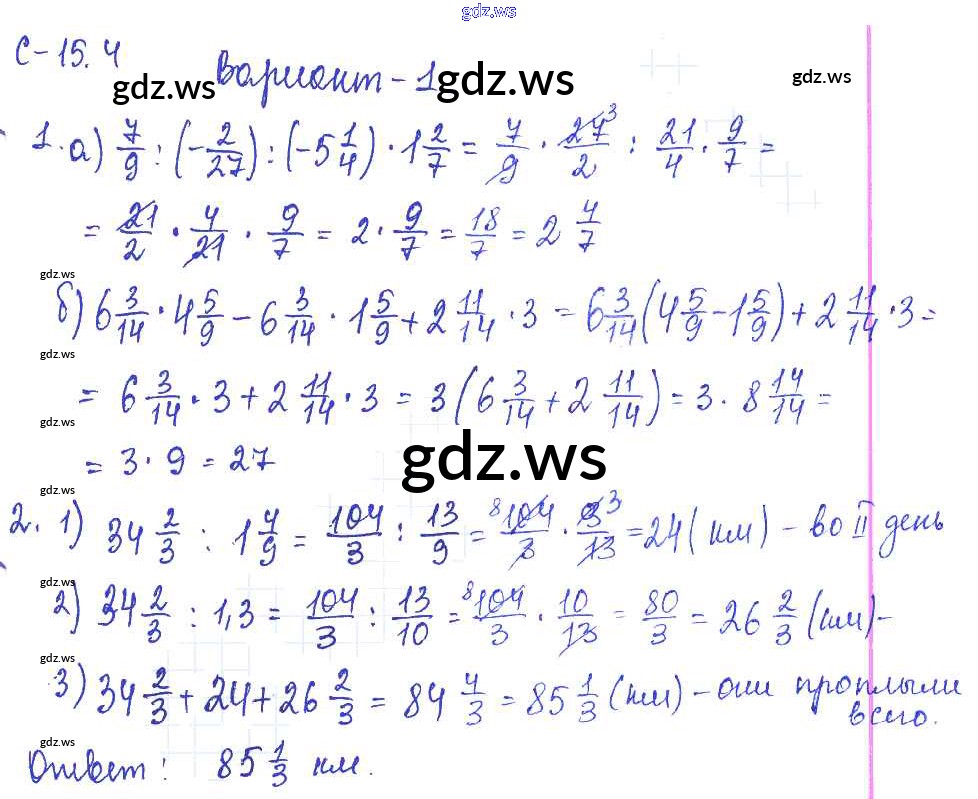 gdz.ws
С-15.4 Вариант-1
gdz.ws gdz.ws gdz.ws
1. а) 7/9 : (-2/27) : (-5 1/4) · 1 2/7 = 7/9 · 27³/2 : 21/4 · 9/7 =
= 21/2 · 4/21 · 9/7 = 2 · 9/7 = 18/7 = 2 4/7
gdz.ws
б) 6 3/14 · 4 5/9 - 6 3/14 · 1 5/9 + 2 11/14 · 3 = 6 3/14 (4 5/9 - 1 5/9) + 2 11/14 · 3 =
gdz.ws
= 6 3/14 · 3 + 2 11/14 · 3 = 3 (6 3/14 + 2 11/14) = 3 · 8 14/14 =
gdz.ws
= 3 · 9 = 27
gdz.ws
gdz.ws
2. 1) 34 2/3 : 1 4/9 = 104/3 : 13/9 = ⁸104/3 · 9³/13 = 24 (км) - во II день
gdz.ws
2) 34 2/3 : 1,3 = 104/3 : 13/10 = ⁸104/3 · 10/13 = 80/3 = 26 2/3 (км) -
gdz.ws
3) 34 2/3 + 24 + 26 2/3 = 84 4/3 = 85 1/3 (км) - они проплыли
всего.
gdz.ws
Ответ: 85 1/3 км.